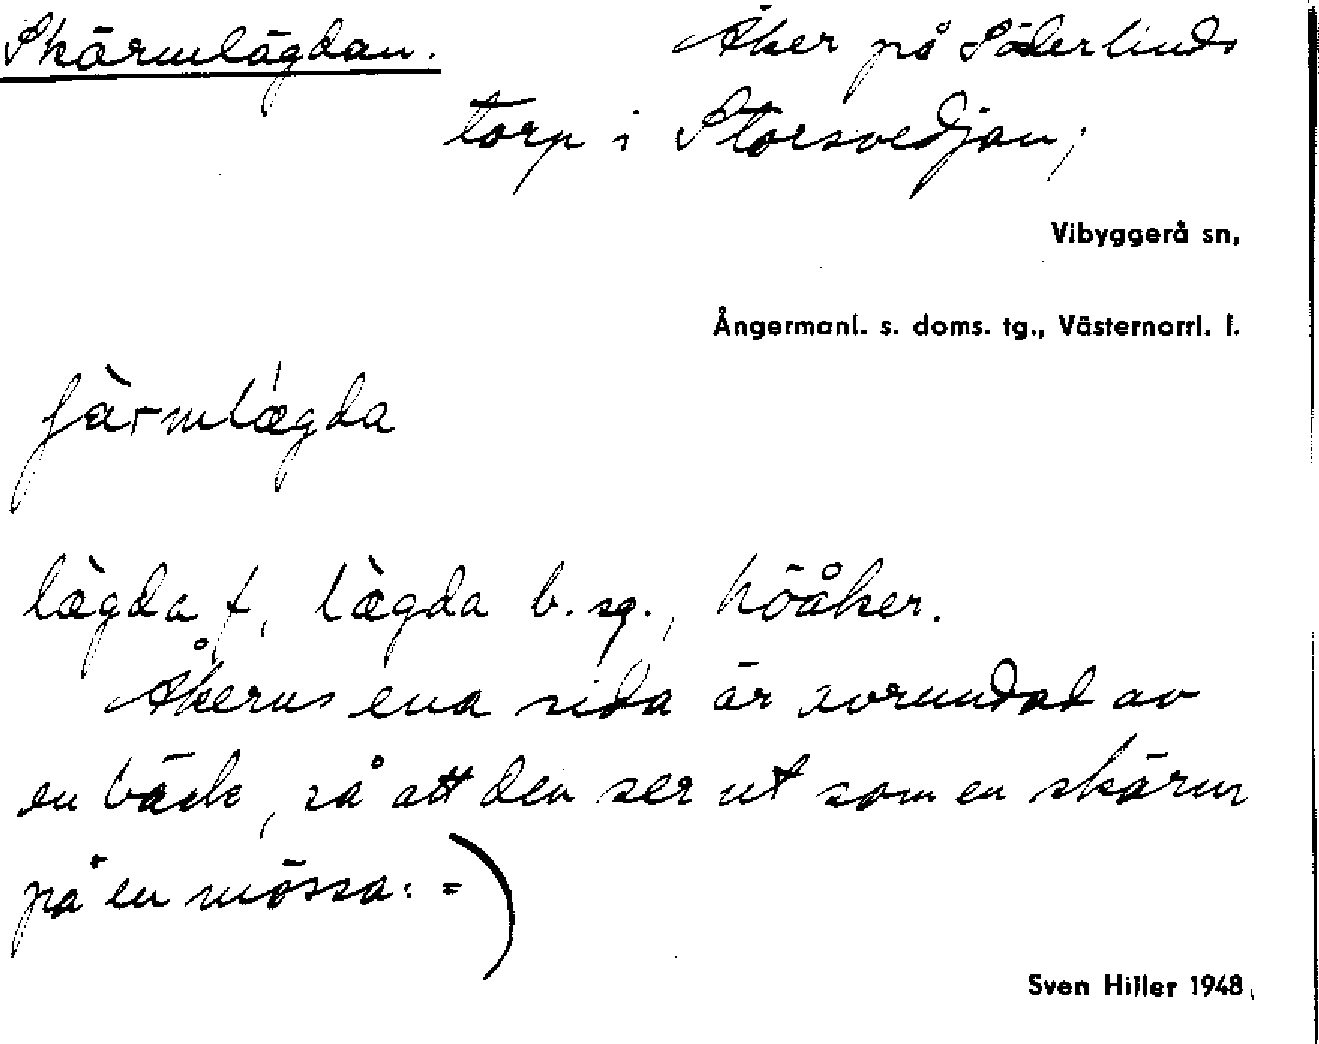 Skärmlägdan. Åker på Söderlinds
torp i Storsvedjan;
Vibyggerå sn,
Ångermanl. s. doms. tg., Västernorrl. l.
ʃὰrmlægda
lὲgda f, lὲgda b. sg., höåker.
Åkerns ena sida är avrundad av
en bäck, så att den ser ut som en skärm
på en mössa: =)
Sven Hiller 1948